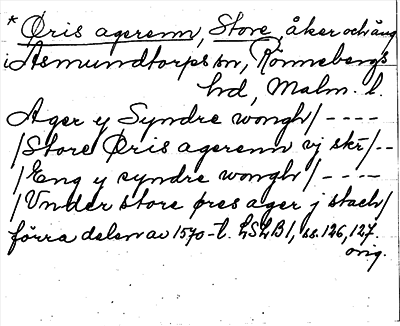 * Øris agerenn, Store, åker och äng
i Asmundtorps sn, Rönnebergs
hd, Malm. l.
Ager y Syndre wongh/ ----
/Store Øris agerenn vj skr/--
/Eng y syndre wongh/ ----
/Vnder store øres ager j stach/
förra delen av 1570-t. LSLB1, ss. 126, 127.
orig.